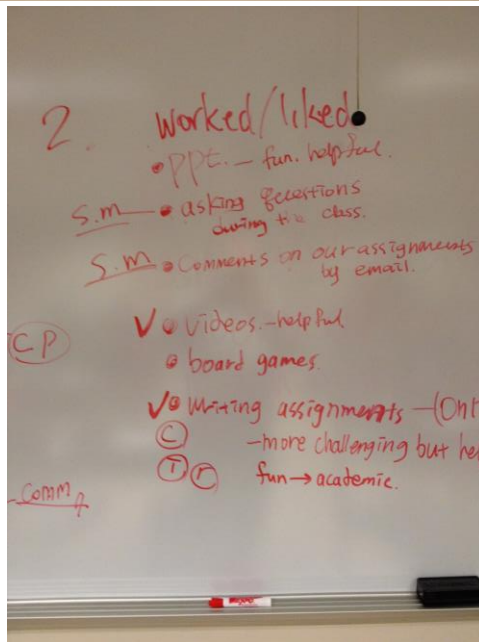 2. worked/liked
• ppt. – fun. helpful.
S.m – • asking questions
during the class.
S.m • Comments on our assignments
by email.
V • Videos. – helpful
CP
• board games.
V • Writing assignments – (Onl
C – more challenging but hel
T r fun → academic.
COMM